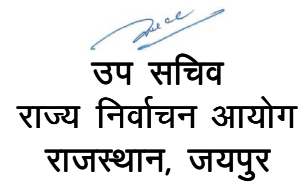 उप सचिव
राज्य निर्वाचन आयोग
राजस्थान, जयपुर